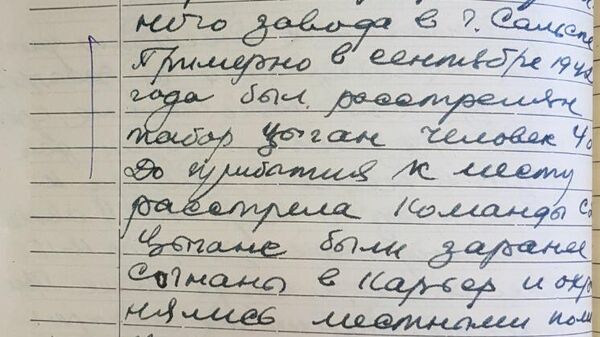 ного завода в г. Сальске
Примерно в сентябре 1942
года был расстрелян
табор цыган человек 40
До прибытия к месту
расстрела команды С
цыгане были заране
согнаны в карьер и охра
нялись местными поли